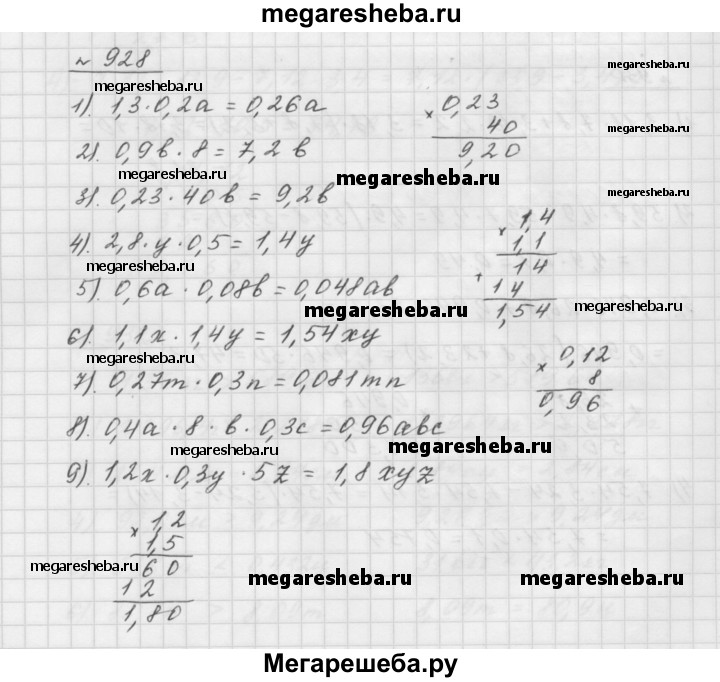 megaresheba.ru
№ 928
megaresheba.ru
1). 1,3·0,2a = 0,26a
× 0,23
40
9,20
megaresheba.ru
megaresheba.ru
2). 0,9b·8 = 7,2b
megaresheba.ru
megaresheba.ru
megaresheba.ru
3). 0,23·40b = 9,2b
4). 2,8·y·0,5 = 1,4y
× 1,4
1,1
+ 14
14
1,54
megaresheba.ru
5). 0,6a·0,08b = 0,048ab
megaresheba.ru
megaresheba.ru
6). 1,1x·1,4y = 1,54xy
megaresheba.ru
7). 0,27m·0,3n = 0,081mn
× 0,12
8
0,96
8). 0,4a·8·b·0,3c = 0,96abc
megaresheba.ru
megaresheba.ru
9). 1,2x·0,3y·5z = 1,8xyz
× 1,2
1,5
60
12
1,80
megaresheba.ru
megaresheba.ru
megaresheba.ru
Мегарешеба.ру